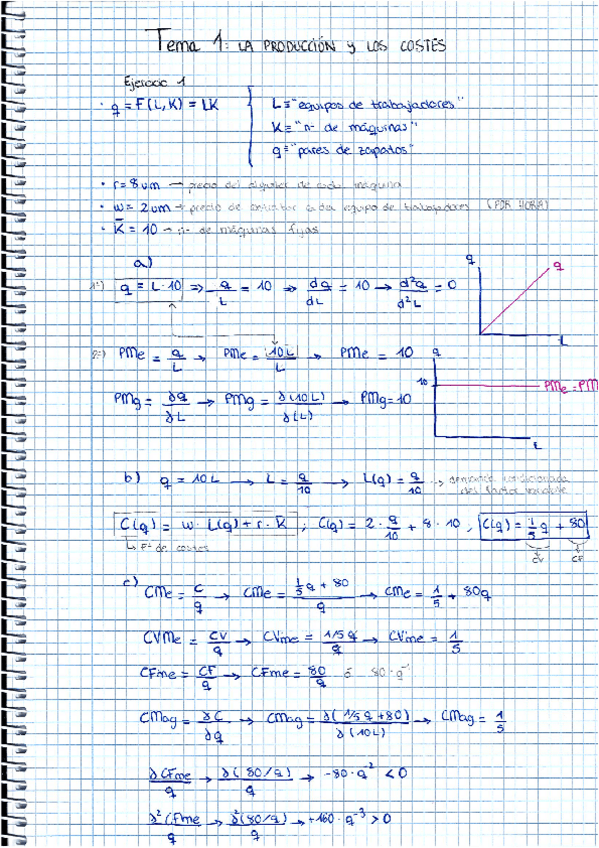 Tema 1: LA PRODUCCIÓN y LOS COSTES
Ejercicio 1
· q = F(L,K) = LK
L ≡ "equipos de trabajadores"
K ≡ "nº de máquinas"
q ≡ "pares de zapatos"
· r = 8 um → precio del alquiler de cada máquina
· w = 2 um → precio de contratar cada equipo de trabajadores (POR HORA)
· K̄ = 10 → nº de máquinas fijas
a)
1º) q = L·10 ⇒ q/L = 10 → dq/dL = 10 → d²q/d²L = 0
q q L
2º) PMe = q/L → PMe = 10L/L → PMe = 10
PMg = ∂q/∂L → PMg = ∂(10L)/∂(L) → PMg = 10
q 10 PMe = PM L
b) q = 10L → L = q/10 → L(q) = q/10 → demanda condicionada del factor variable
C(q) = w · L(q) + r · K̄ ; C(q) = 2 · q/10 + 8 · 10 , C(q) = 1/5 q + 80
↳ Fº de costes CV CF
c) CMe = C/q → CMe = (1/5 q + 80)/q → CMe = 1/5 + 80q
CVMe = CV/q → CVme = 1/5 q/q → CVme = 1/5
CFme = CF/q → CFme = 80/q ó 80·q⁻¹
CMag = ∂C/∂q → CMag = ∂(1/5 q + 80)/∂(10L) → CMag = 1/5
∂CFme/q → ∂(80/q)/q → -80·q² < 0
∂²CFme/q → ∂²(80/q)/q → +160·q⁻³ > 0